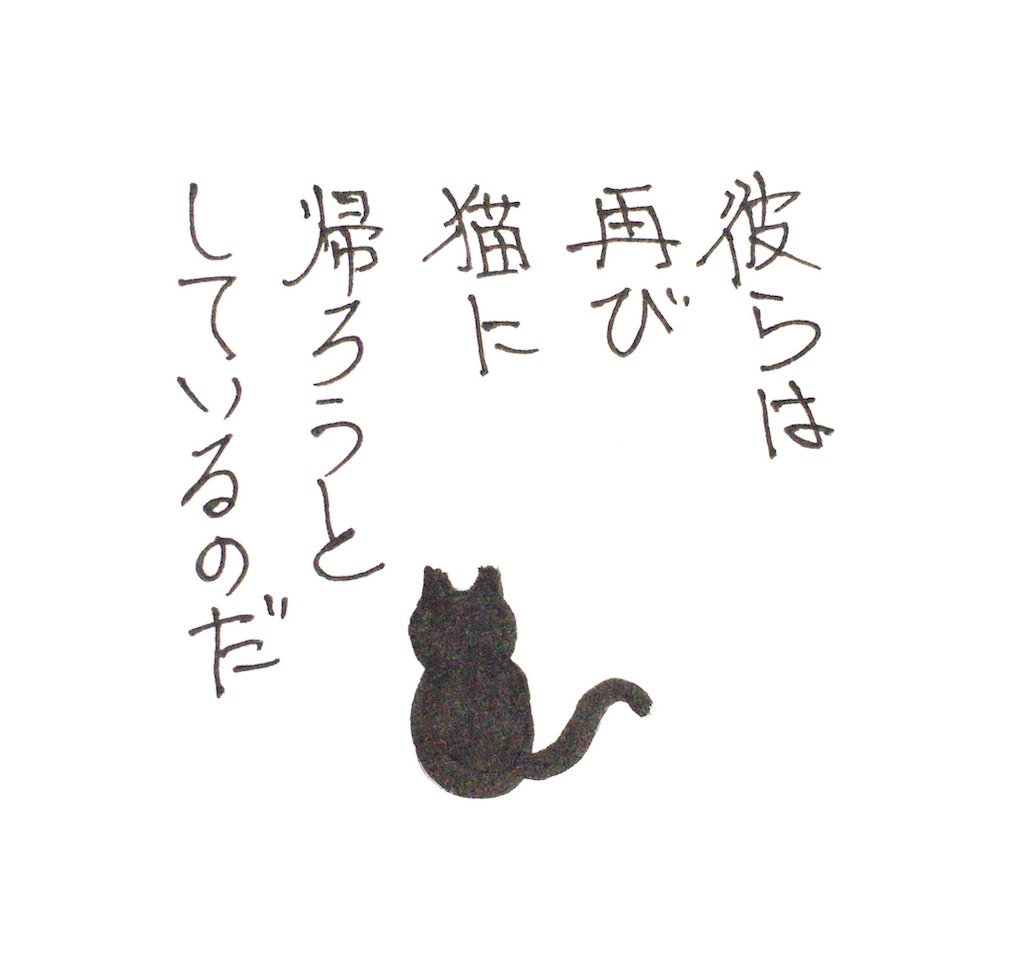 彼らは
再び
猫に
帰ろうと
しているのだ